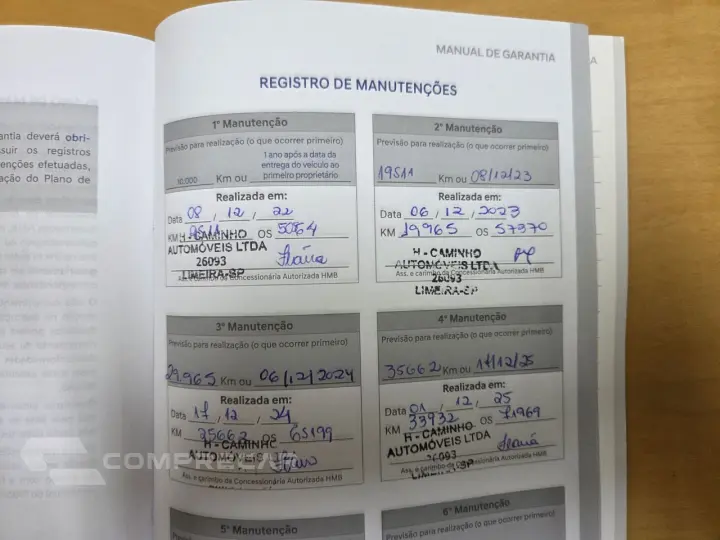 MANUAL DE GARANTIA
REGISTRO DE MANUTENÇÕES
antia deverá obri-
suir os registros
enções efetuadas,
ação do Plano de
1ª Manutenção
Previsão para realização (o que ocorrer primeiro)
10.000 Km ou 1 ano após a data da entrega do veículo ao primeiro proprietário
Realizada em:
Data 08 / 12 / 22
KM 9511 OS 50564
H - CAMINHO
AUTOMÓVEIS LTDA
26093
LIMEIRA-SP
Ass. e carimbo da Concessionária Autorizada HMB
2ª Manutenção
Previsão para realização (o que ocorrer primeiro)
19511 Km ou 08/12/23
Realizada em:
Data 06 / 12 / 2023
KM 19965 OS 57370
H - CAMINHO
AUTOMÓVEIS LTDA
Ass. e carimbo da Concessionária Autorizada HMB
26093
LIMEIRA-SP
3ª Manutenção
Previsão para realização (o que ocorrer primeiro)
29.965 Km ou 06/12/2024
Realizada em:
Data 17 / 12 / 24
KM 25662 OS 65199
H - CAMINHO
AUTOMÓVEIS
Ass. e carimbo da Concessionária Autorizada HMB
4ª Manutenção
Previsão para realização (o que ocorrer primeiro)
35662 Km ou 17/12/25
Realizada em:
Data 01 / 12 / 25
KM 33932 OS 71969
H - CAMINHO
AUTOMÓVEIS LTDA
26093
Ass. e carimbo da Concessionária Autorizada HMB
LIMEIRA-SP
5ª Manutenção
6ª Manutenção
Previsão para realização (o que ocorrer primeiro)
COMPRECAR